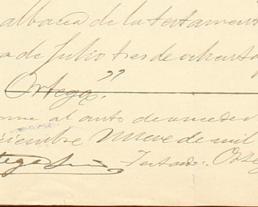 albacea de la testament
de Julio tres de ochenta
Ortega."
me al auto de
iciembre nueve de mil
Testado: Orte